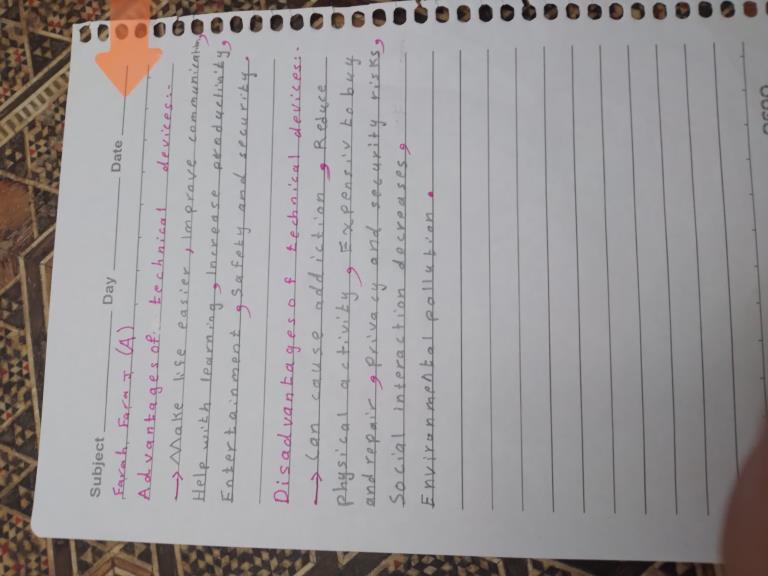 Subject Day Date
Farah Faraz (A)
Advantages of technical devices:-
→ Make life easier, Improve communication,
Help with learning, Increase productivity,
Entertainment, Safety and security.
Disadvantages of technical devices:-
→ Can cause addiction, Reduce
physical activity, Expensiv to buy
and repair, privacy and security risks,
Social interaction decreases,
Environmental pollution.